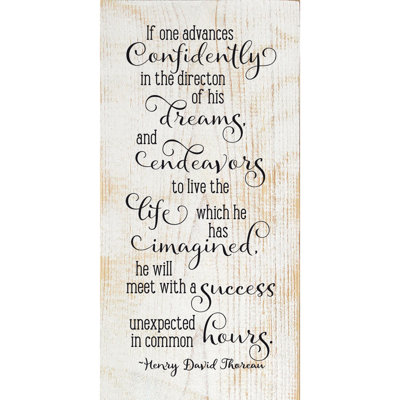 If one advances
Confidently
in the directon
of his
dreams,
and
endeavors
to live the
life which he
has
imagined,
he will
meet with a success
unexpected
in common hours.
~Henry David Thoreau